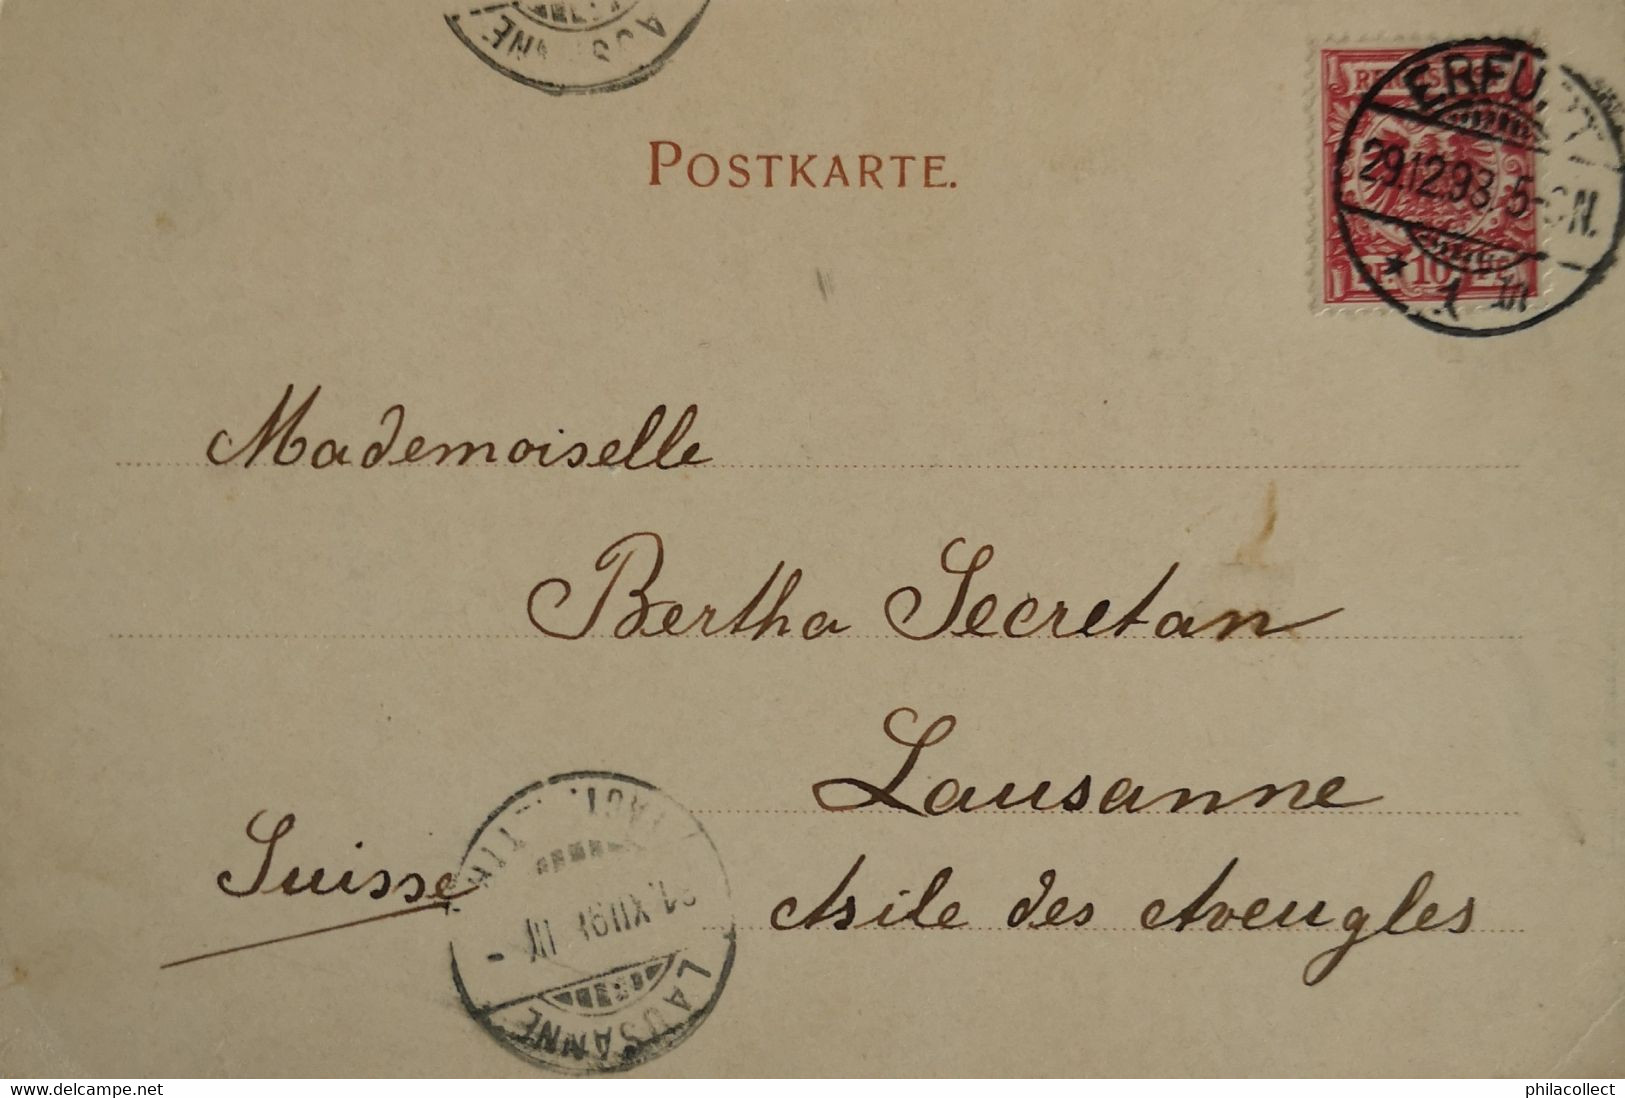 LAUSANNE
POSTKARTE.
REICHSPOST
PF 10 PF
ERFURT
29.12.98. 5-6N.
* 1 *
Mademoiselle
Bertha Secretan
Lausanne
Suisse
Asile des Aveugles
XII 98
LAUSANNE
philacollect